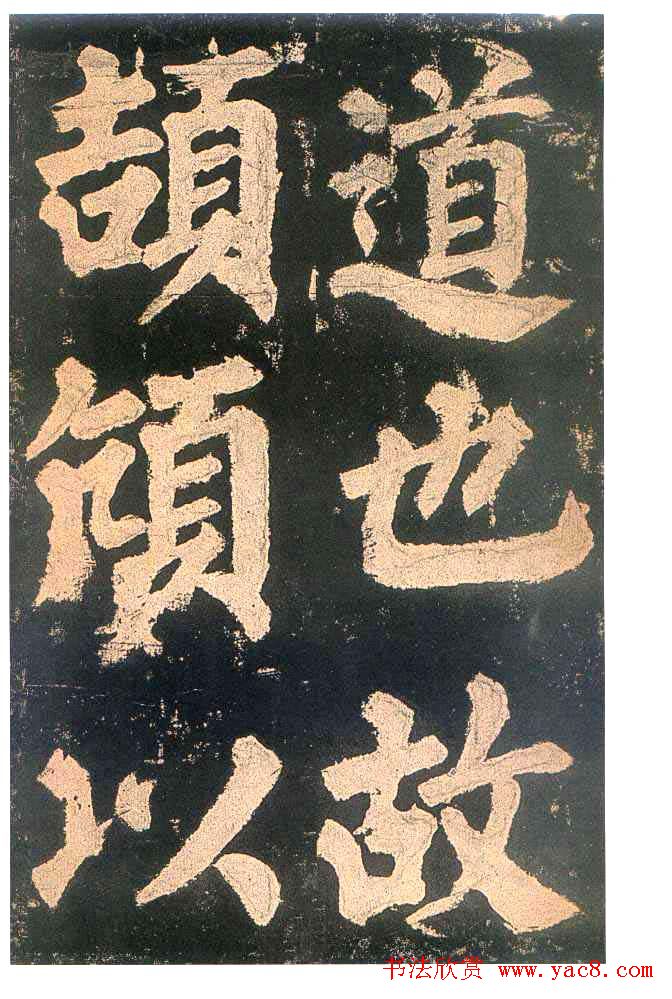 道也故
頡頏以
书法欣赏 www.yac8.com